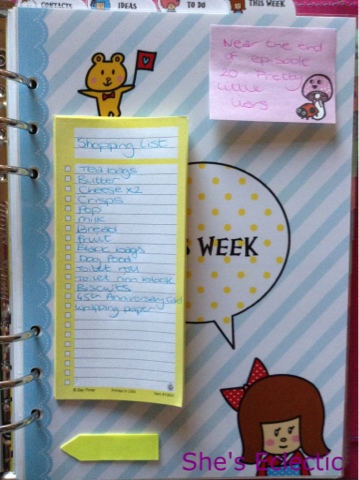 CONTACTS
IDEAS
TO DO
THIS WEEK
Near the end
of episode
20 Pretty
Little
Liars
Shopping List
Tea bags
Butter
Cheese x2
Crisps
Pop
milk
Bread
fruit
Black bags
Dog food
toilet roll
Toilet
Biscuits
45th Anniversary Card
Wrapping paper
WEEK
She's Eclectic